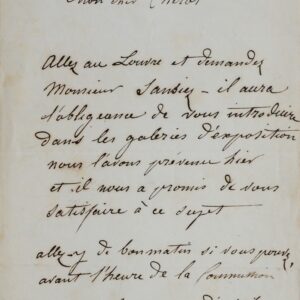 Mon cher
Allez au Louvre et demandez
Monsieur - il aura
l'obligeance de vous introduire
dans les galeries d'exposition
nous l'avons prévenu hier
et il nous a promis de vous
satisfaire à ce sujet
allez y de bon matin si vous pouvez
avant l'heure de la